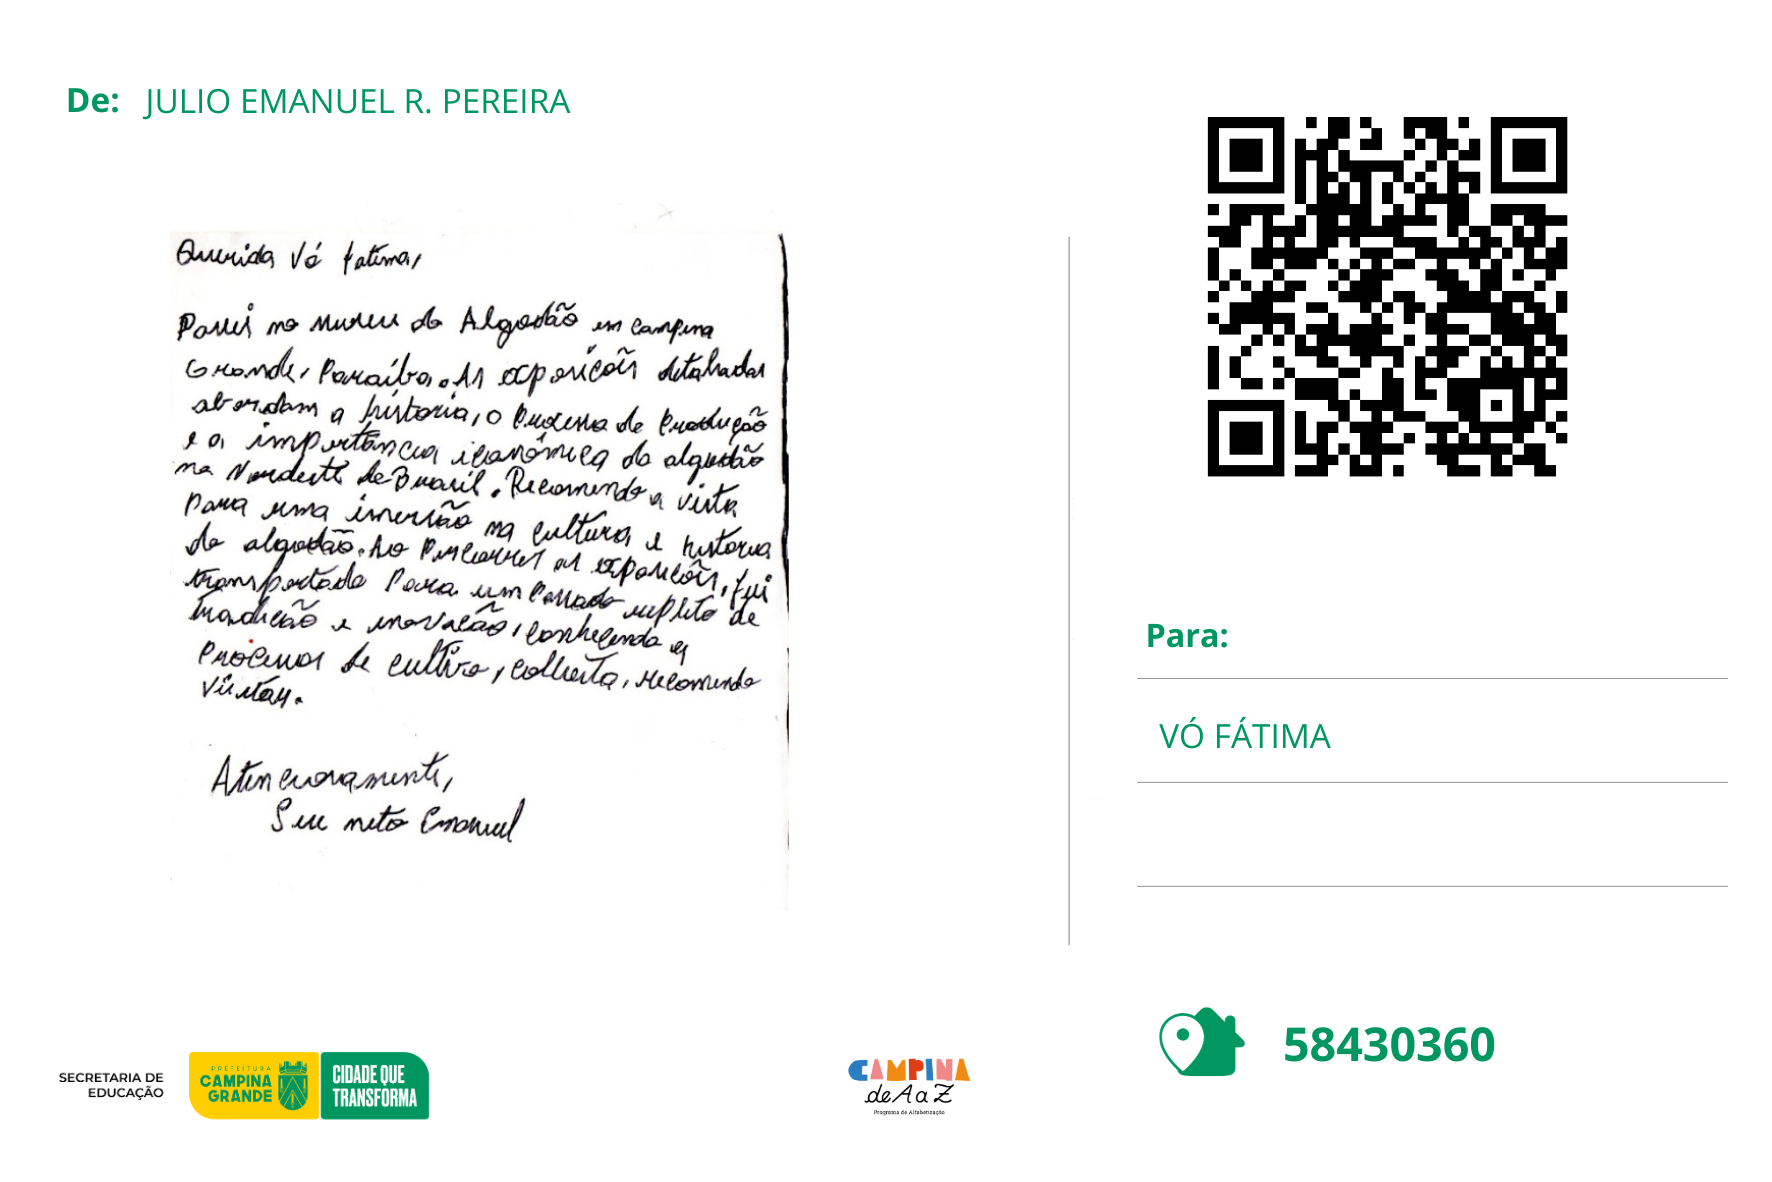 De: JULIO EMANUEL R. PEREIRA
Querida Vó Fatima,
Passei no museu do Algodão em campina
Grande, Paraíba. As exposições detalhadas
abordam a história, o Processo de Produção
e a importância econômica do algodão
no Nordeste do Brasil. Recomendo a visita
Para uma imersão na cultura e historia
do algodão. Ao Percorrer as exposicões, fui
transportado Para um Passado repleto de
tradicão e inovacão, conhecendo os
Processos de cultivo, colheita, recomendo
Atenciosamente,
Seu neto Emanuel
Para:
VÓ FÁTIMA
58430360
SECRETARIA DE
EDUCAÇÃO
PREFEITURA
CAMPINA
GRANDE
CIDADE QUE
TRANSFORMA
CAMPINA
de A a Z
Programa de Alfabetização